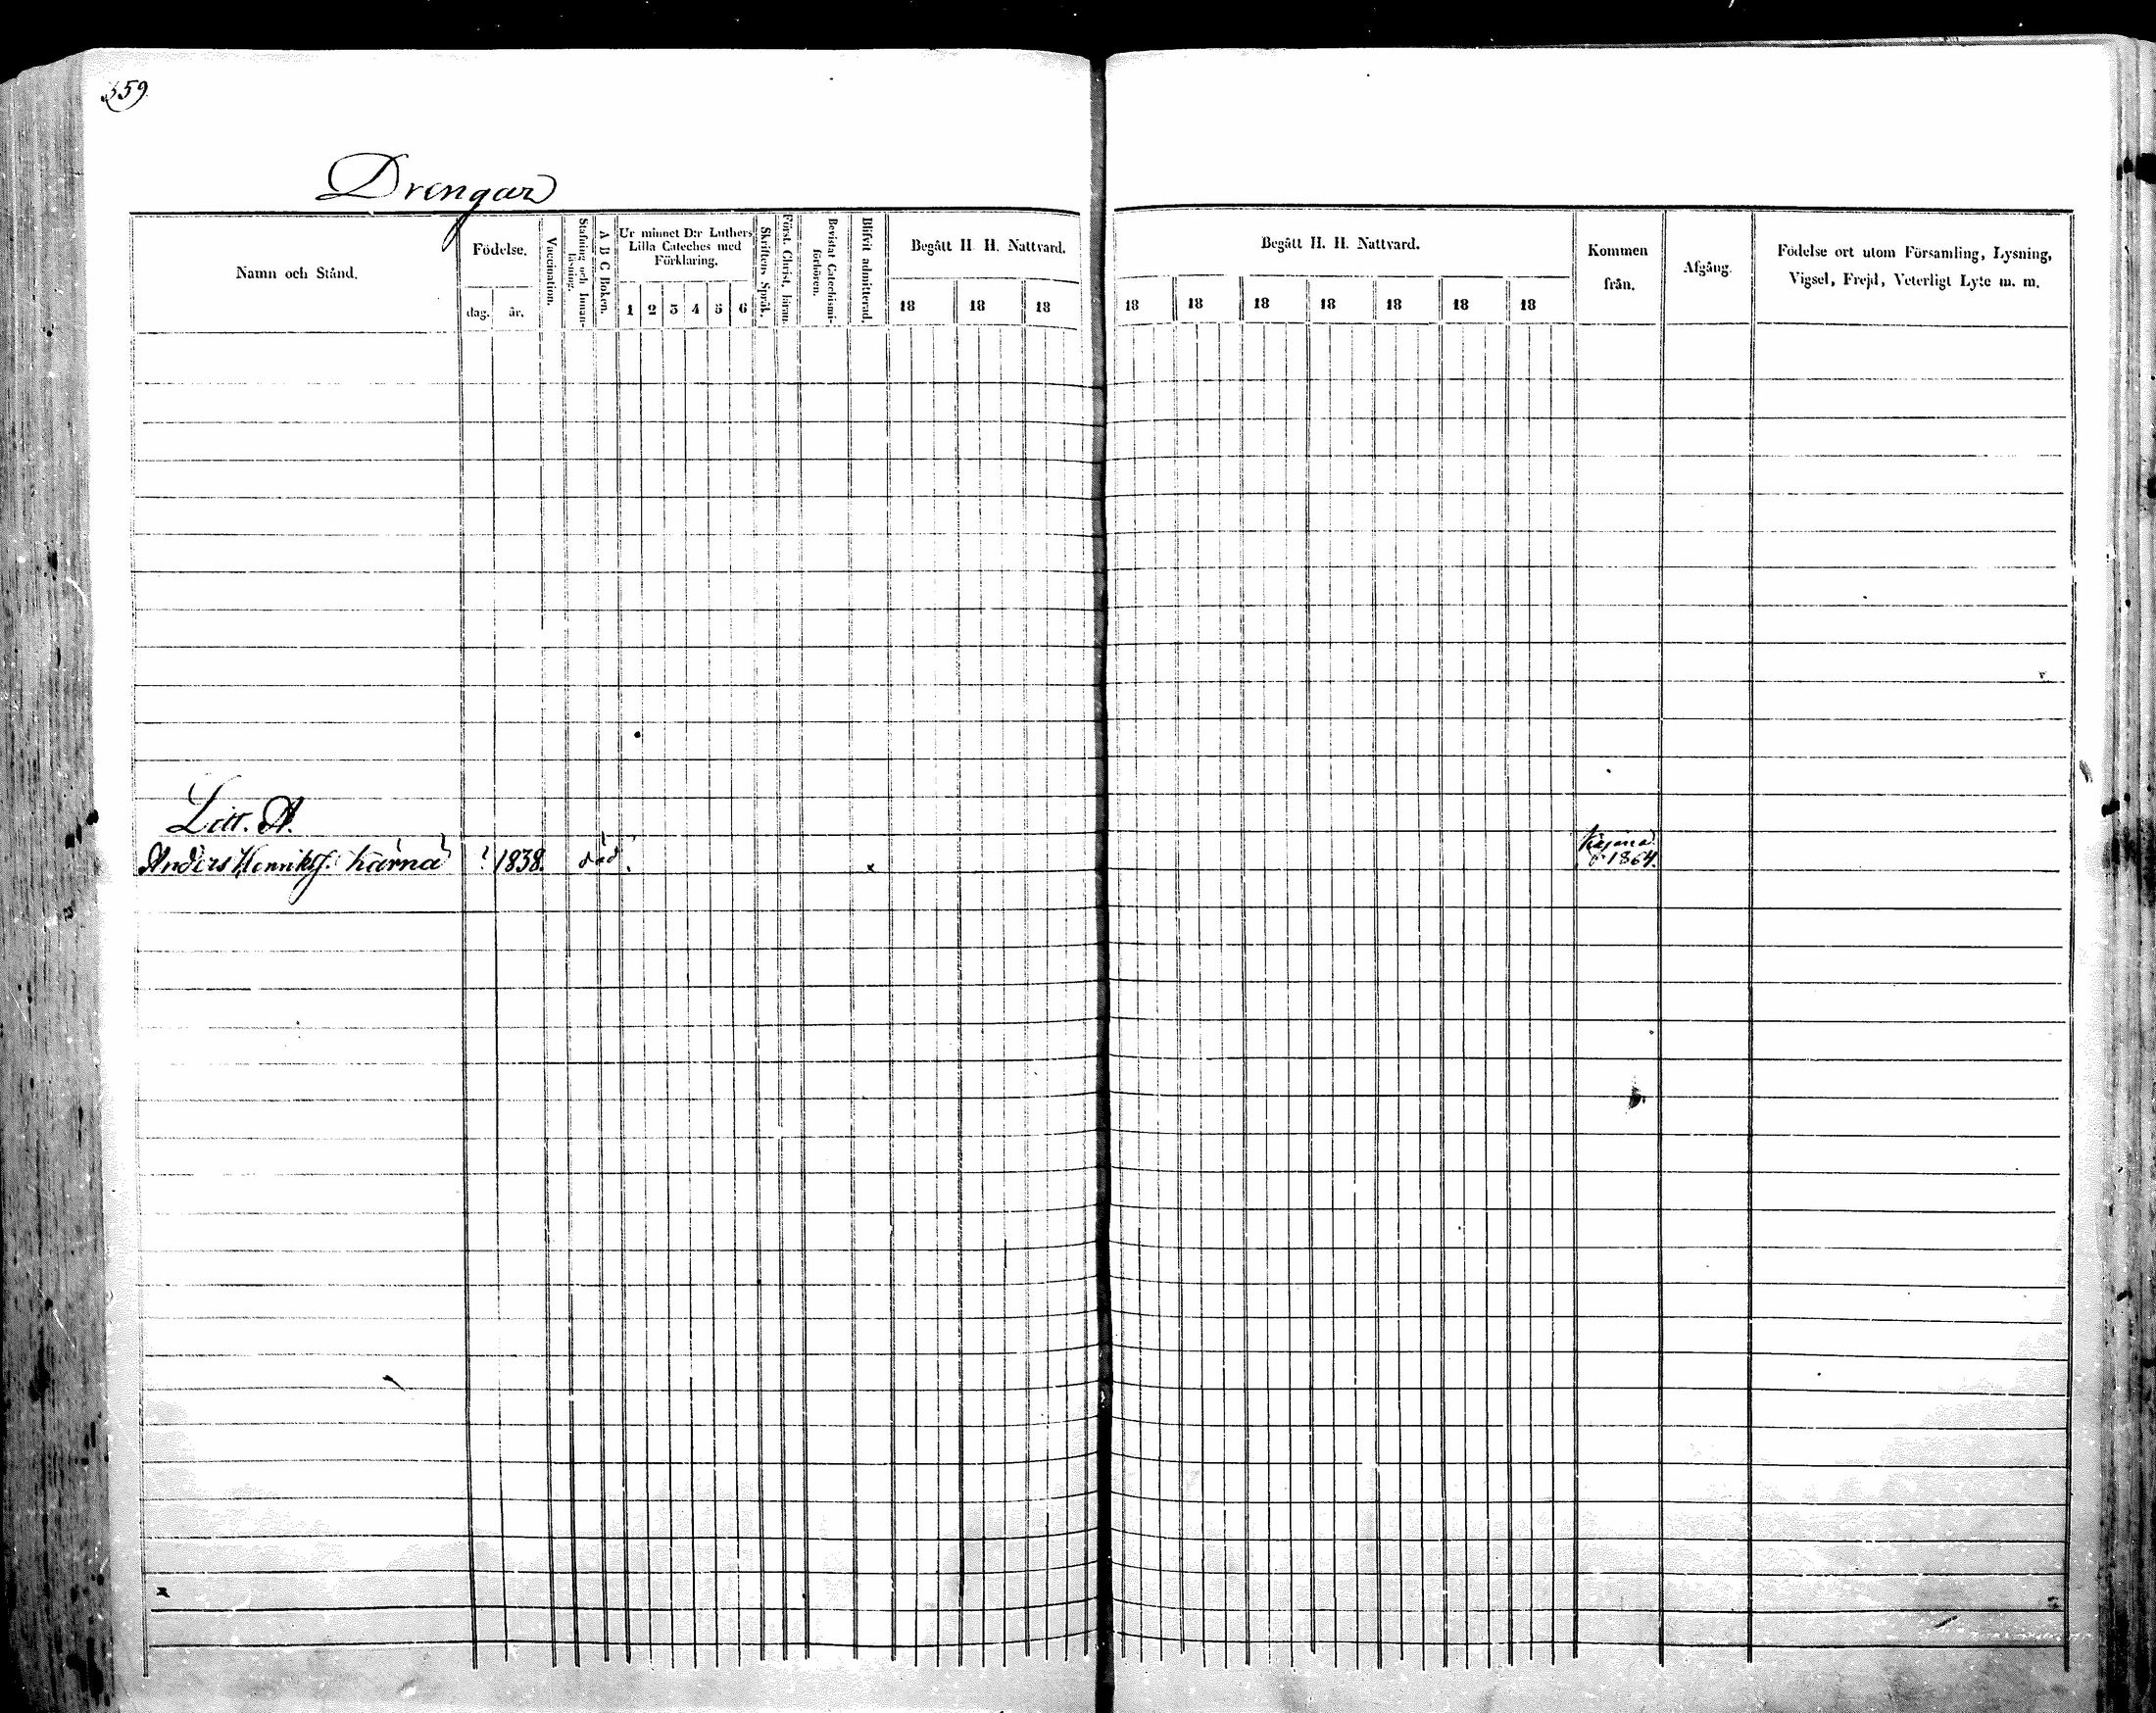 359
Drengar
Namn och Stånd.
Födelse.
dag.
år.
Vaccination.
Stafning och Innan-
läsning.
A B C Boken.
Ur minnet D:r Luthers
Lilla Cateches med
Förklaring.
1 2 3 4 5 6
Skriftens Språk.
Först. Christ. läran.
Bevistat Catechismi-
förhören.
Blifvit admitterad.
Begått H. H. Nattvard.
18 18 18
Begått H. H. Nattvard.
18 18 18 18 18 18 18
Kommen
från.
Afgång.
Födelse ort utom Församling, Lysning,
Vigsel, Frejd, Veterligt Lyte m. m.
Litt. A.
Anders Henriksf. Kärnä ? 1838. död. x
Kajana
1864.